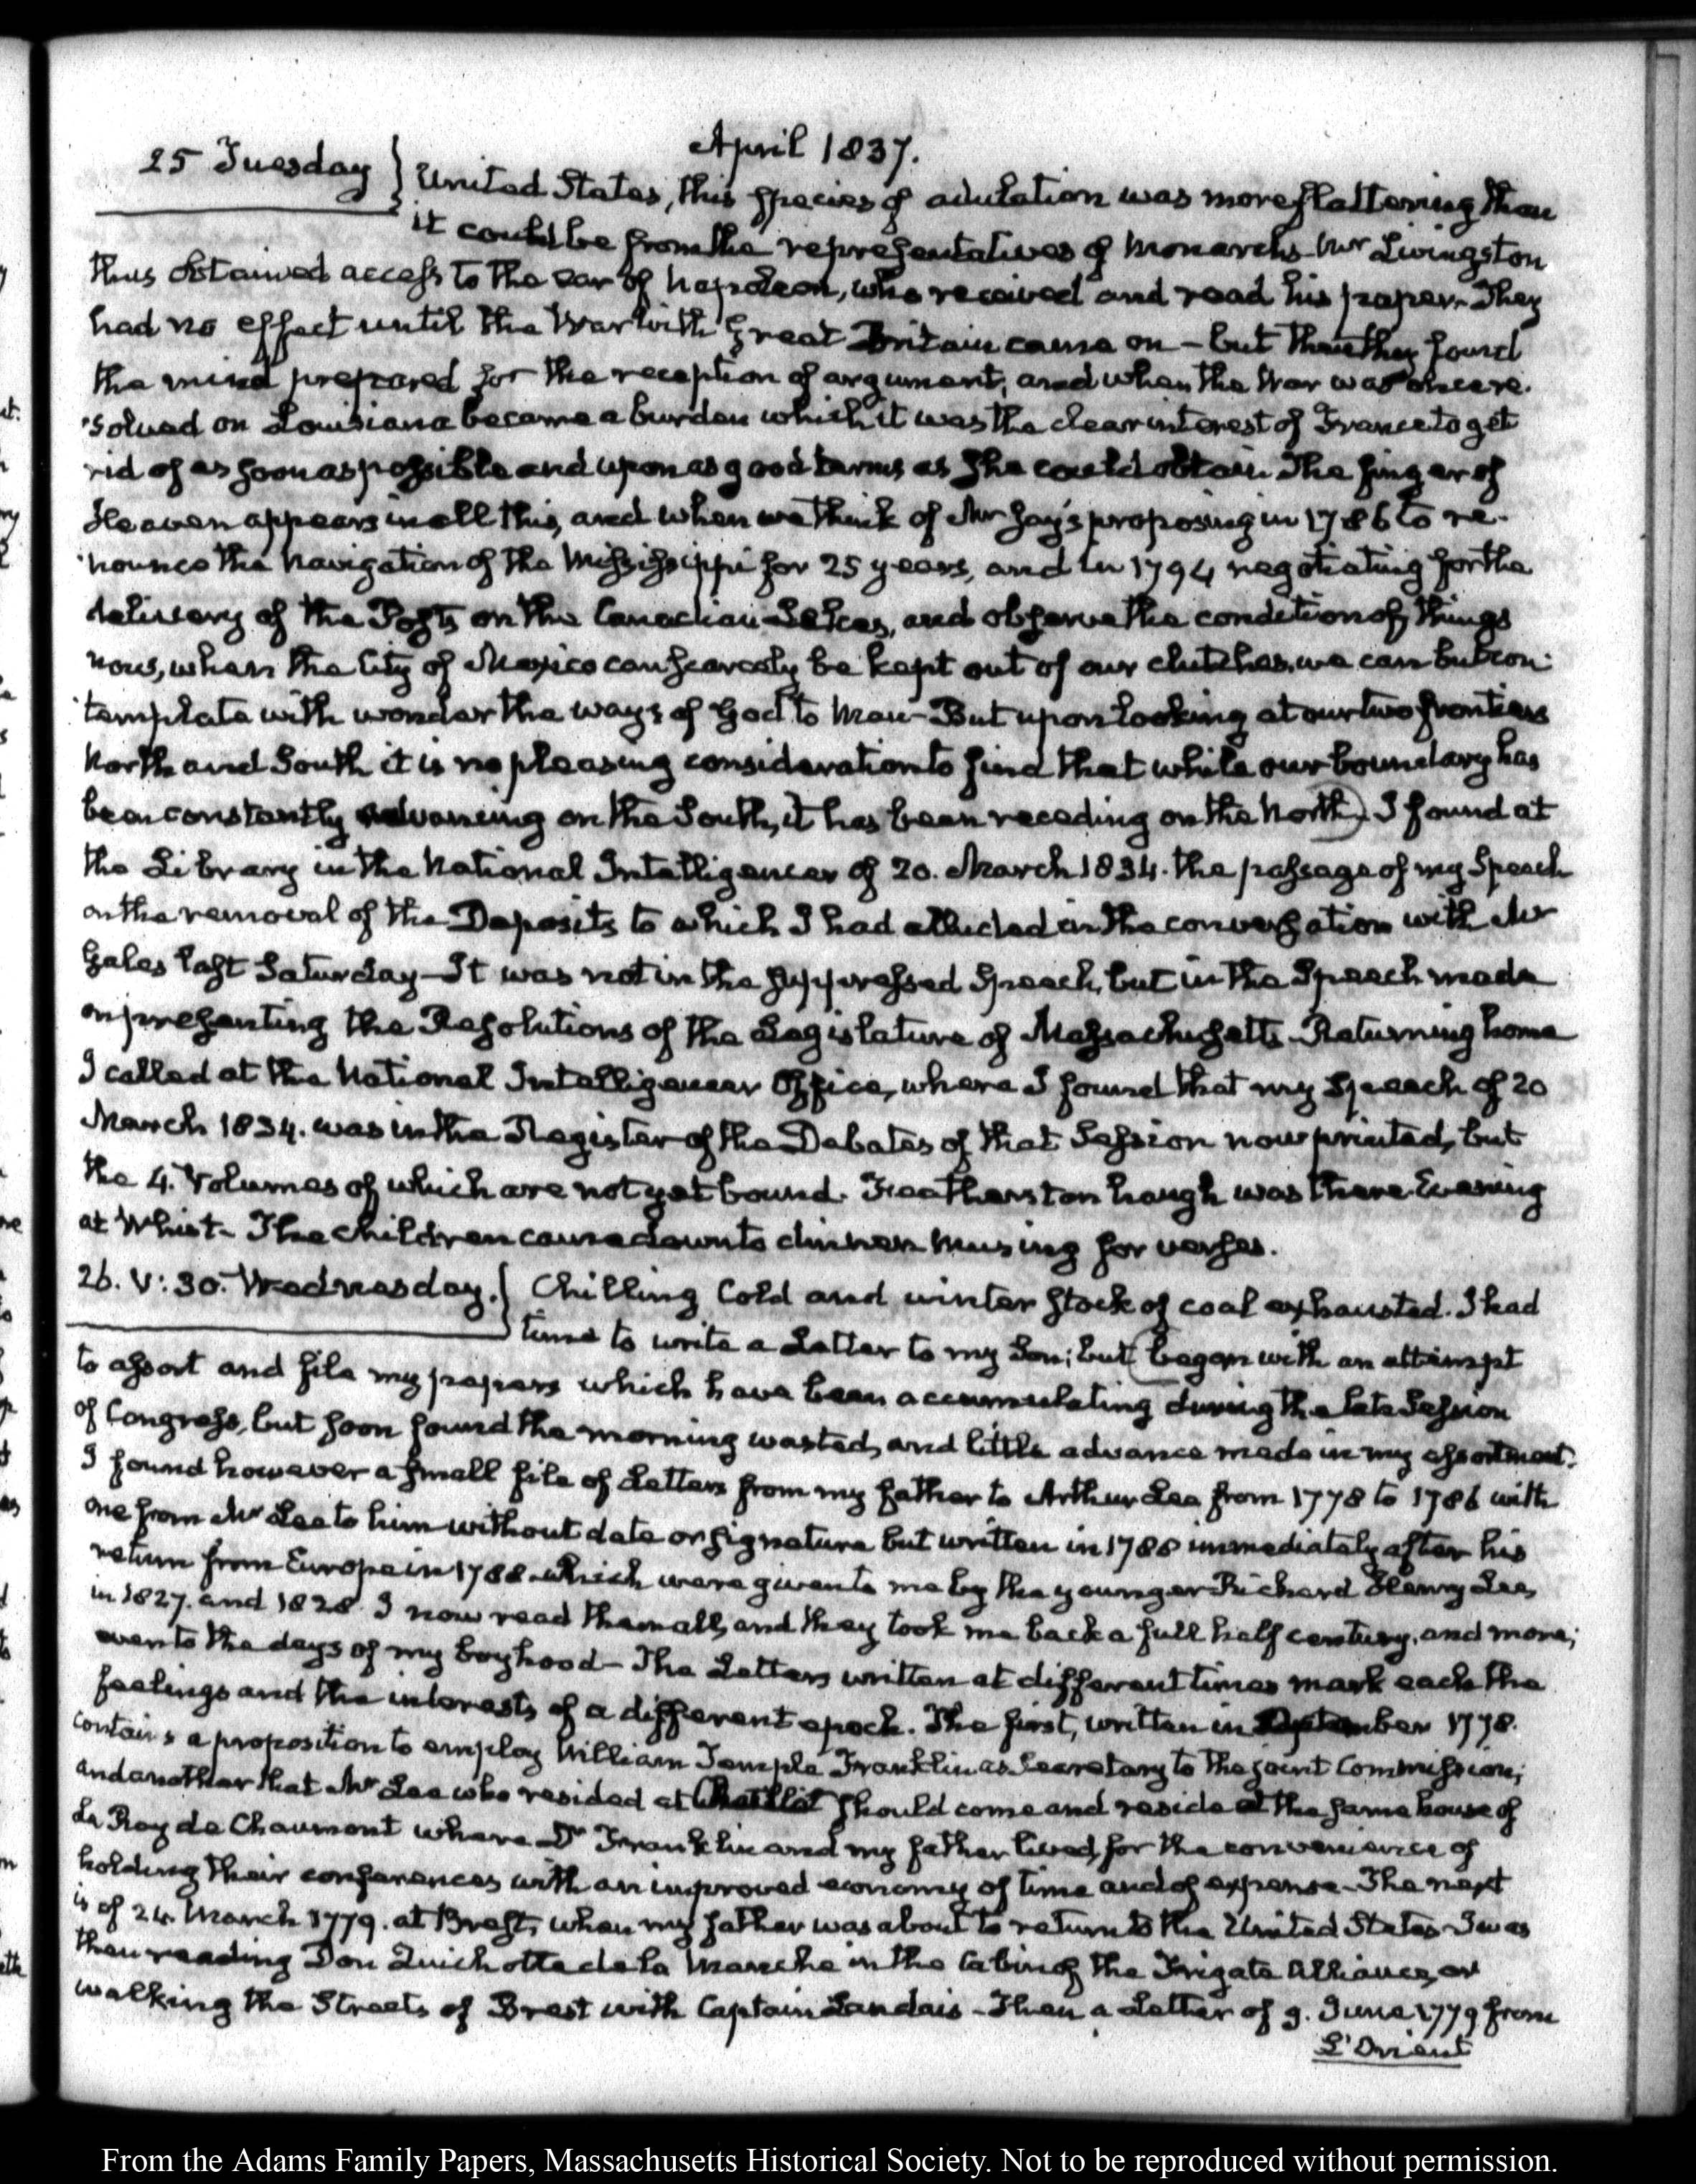 April 1837.
25 Tuesday } United States, this species of adulation was more flattering than
it could be from the representatives of Monarchs. Mr Livingston
thus obtained access to the ear of Napoleon, who received and read his papers. They
had no effect until the War with Great Britain came on – but then they found
the mind prepared for the reception of argument; and when the War was once re-
solved on Louisiana became a burden which it was the clear interest of France to get
rid of as soon as possible and upon as good terms as she could obtain. The finger of
Heaven appears in all this, and when we think of Mr Jay's proposing in 1786 to re-
nounce the navigation of the Mississippi for 25 years, and in 1794 negotiating for the
delivery of the Posts on the Canadian Lakes, and observe the condition of things
now, when the City of Mexico can scarcely be kept out of our clutches, we can but con-
template with wonder the ways of God to Man – But upon looking at our two frontiers
North and South it is no pleasing consideration to find that while our boundary has
been constantly advancing on the South, it has been receding on the North). I found at
the Library in the National Intelligencer of 20. March 1834. the passage of my Speech
on the removal of the Deposits to which I had alluded in the conversation with Mr
Gales last Saturday – It was not in the suppressed Speech, but in the Speech made
on presenting the Resolutions of the Legislature of Massachusetts. Returning home
I called at the National Intelligencer Office, where I found that my Speech of 20
March 1834. was in the Register of the Debates of that Session now printed, but
the 4. Volumes of which are not yet bound. Featherstonhaugh was there. Evening
at Whist – The children came down to dinner. Musing for verses.
26. V:30. Wednesday. } Chilling Cold and winter stock of coal exhausted. I had
time to write a Letter to my Son; but (began with an attempt
to assort and file my papers which have been accumulating during the late Session
of Congress, but soon found the morning wasted, and little advance made in my assortment.
I found however a small file of Letters from my father to Arthur Lee from 1778 to 1786 with
one from Mr Lee to him without date or signature but written in 1788 immediately after his
return from Europe in 1788. which were given to me by the younger Richard Henry Lee,
in 1827. and 1828. I now read them all, and they took me back a full half century, and more;
even to the days of my boyhood – The Letters written at different times mark each the
feelings and the interests of a different epoch. The first, written in September 1778.
contains a proposition to employ William Temple Franklin as Secretary to the joint Commission;
and another that Mr Lee who resided at Chaillot should come and reside at the same house of
Le Roy de Chaumont where Dr Franklin and my father lived, for the convenience of
holding their conferences, with an improved economy of time and of expense – The next
is of 24. March 1779. at Brest, when my father was about to return to the United States – I was
then reading Don Quichotte de la Manche in the Cabin of the Frigate Alliance, or
walking the Streets of Brest with Captain Landais – Then a Letter of 9. June 1779 from
L'Orient
From the Adams Family Papers, Massachusetts Historical Society. Not to be reproduced without permission.